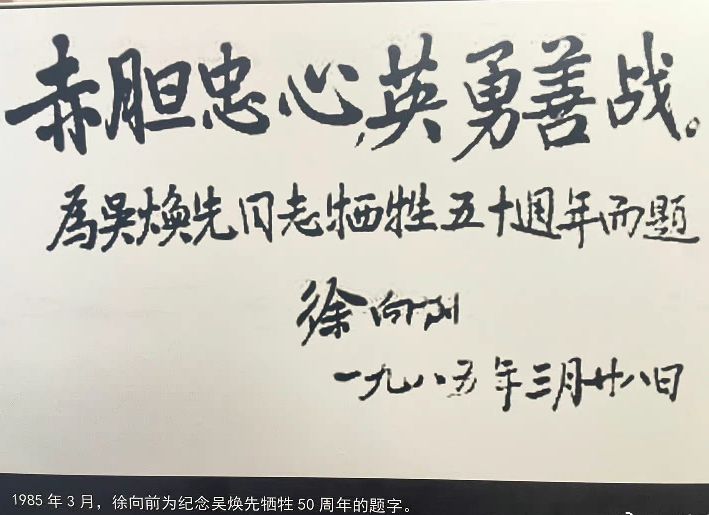 赤胆忠心,英勇善战。
為吳焕先同志牺牲五十週年而题
徐向前
一九八五年三月廿八日
1985年3月，徐向前为纪念吴焕先牺牲50周年的题字。